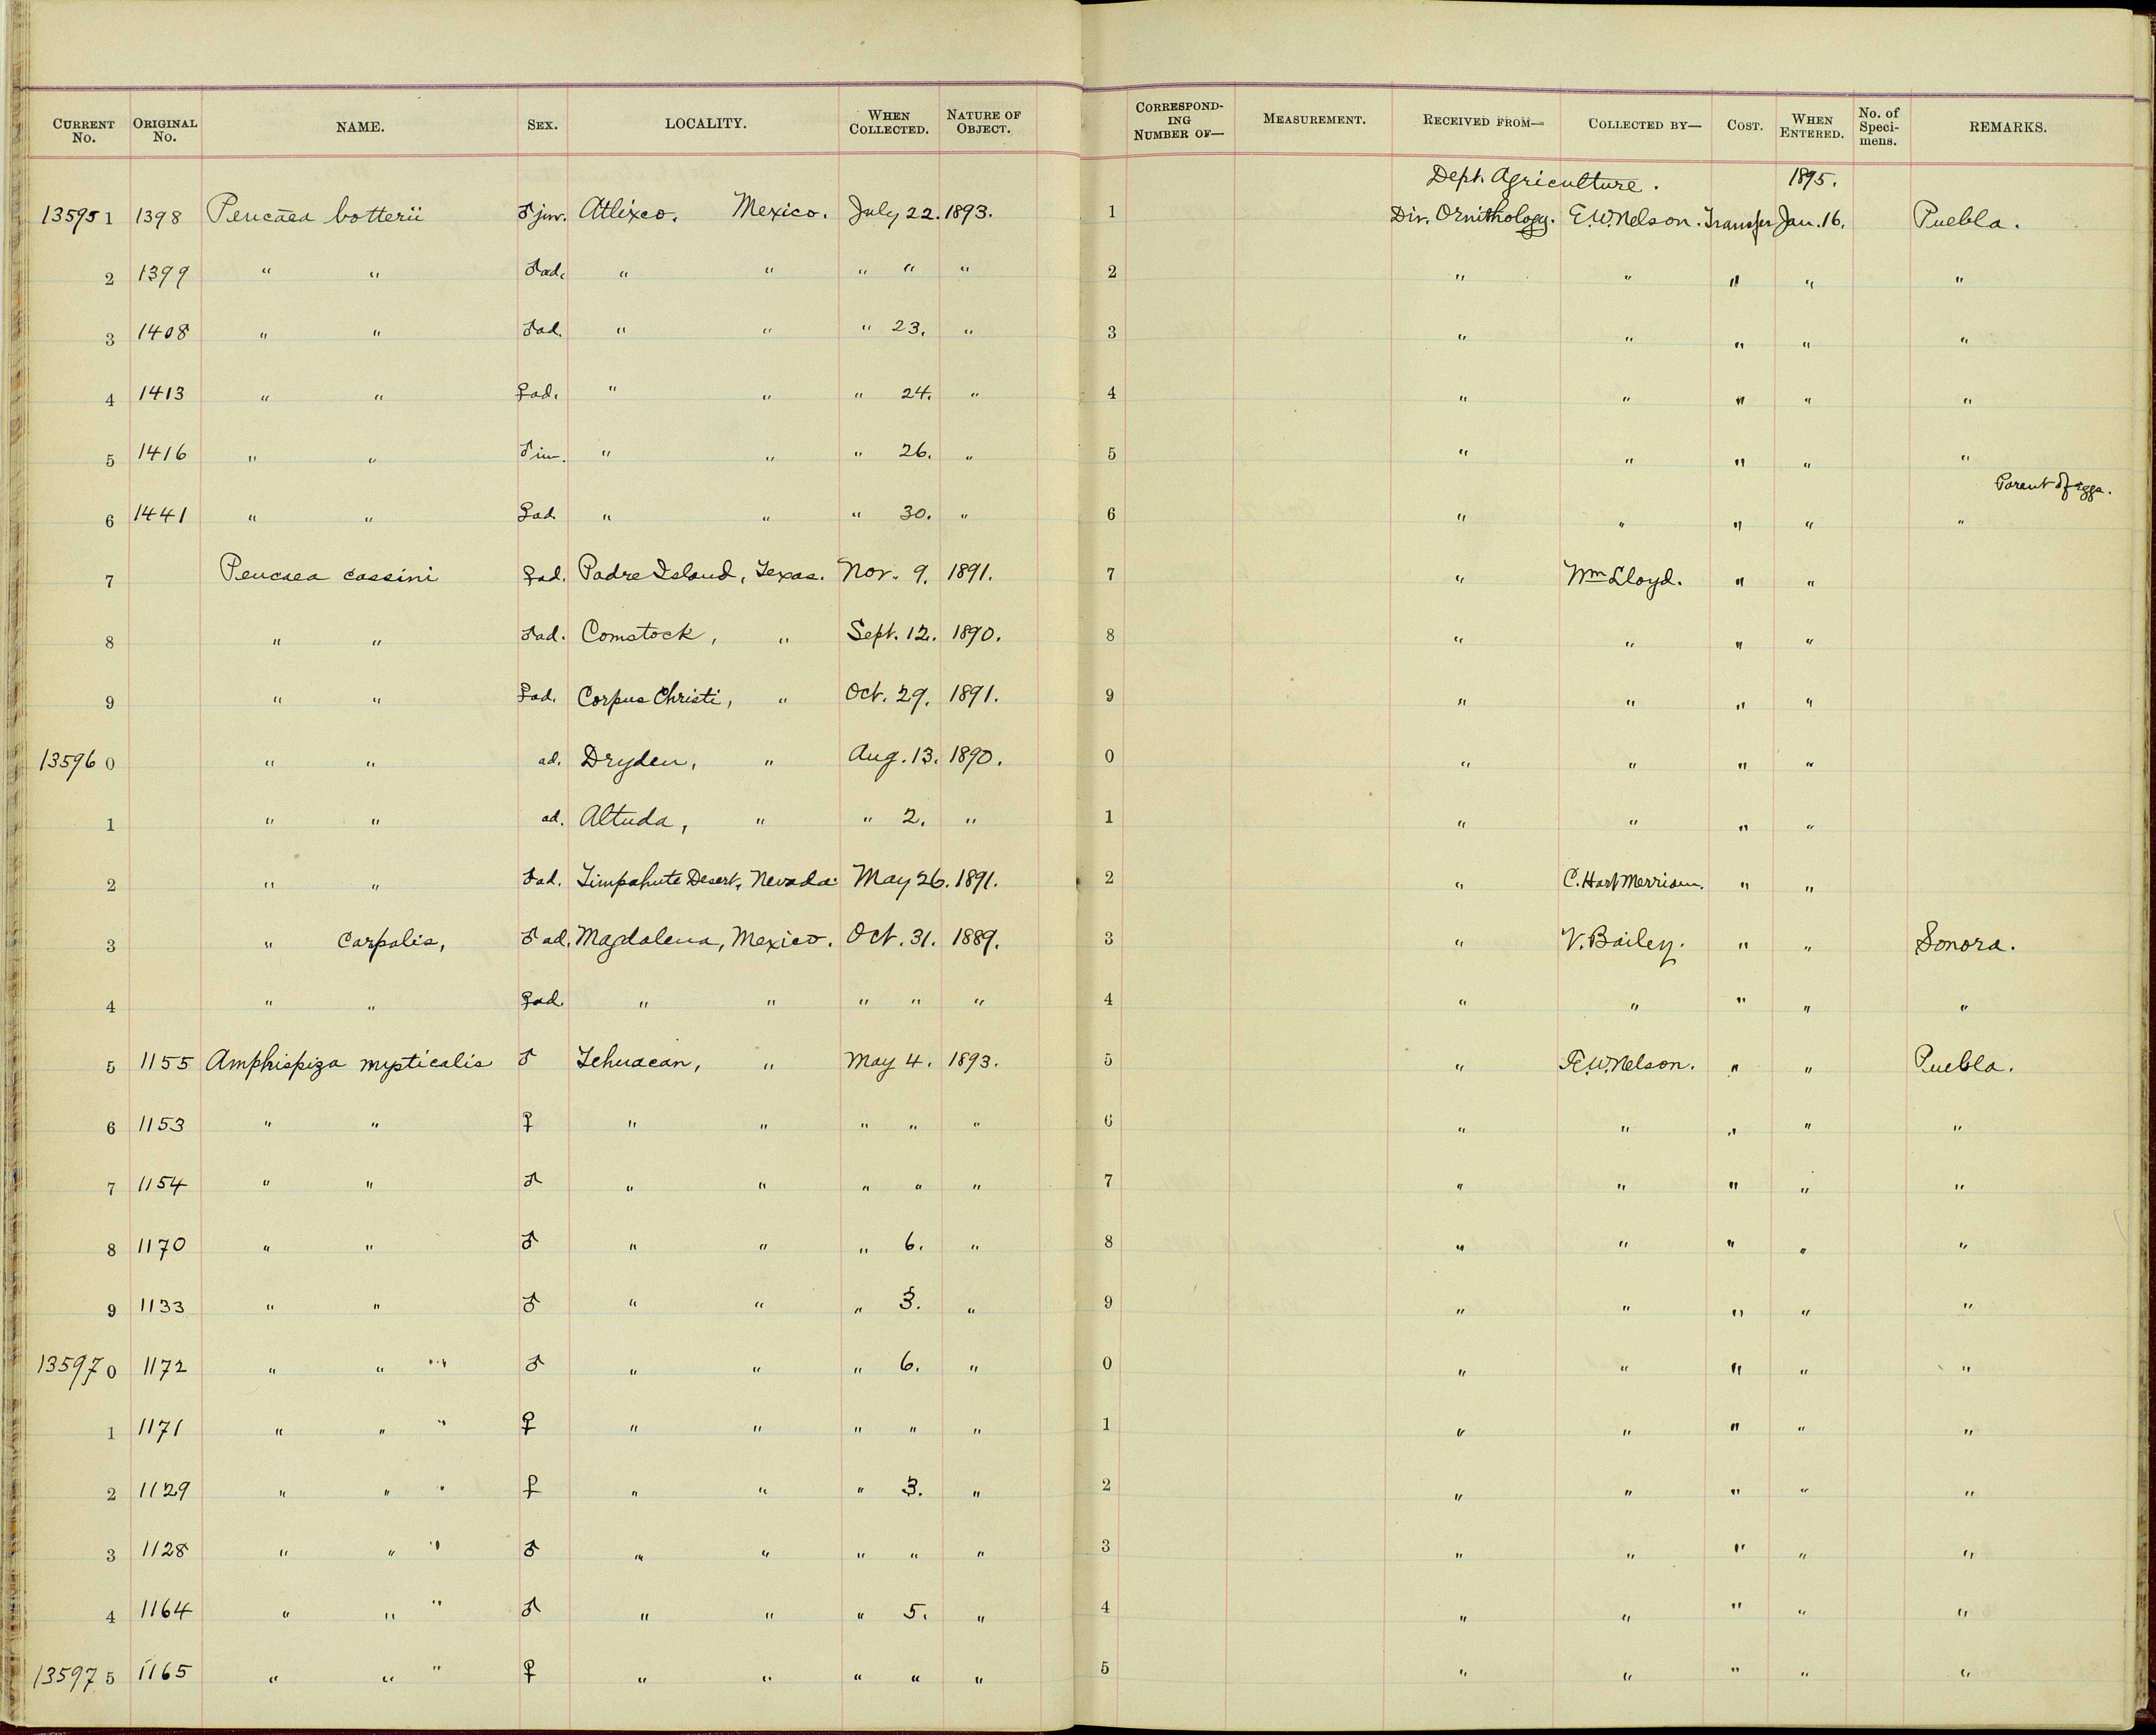 CURRENT No. ORIGINAL No. NAME. SEX. LOCALITY. WHEN COLLECTED. NATURE OF OBJECT. CORRESPONDING NUMBER OF— MEASUREMENT. RECEIVED FROM— COLLECTED BY— COST. WHEN ENTERED. No. of Specimens. REMARKS.
Dept. Agriculture. 1895.
135951 1398 Peucaea botterii ♂ juv. Atlixco. Mexico. July 22. 1893. 1 Div. Ornithology. E.W. Nelson. Transfer Jan. 16. Puebla.
2 1399 " " ♂ ad. " " " " " 2 " " " " "
3 1408 " " ♂ ad. " " " 23. " 3 " " " " "
4 1413 " " ♀ ad. " " " 24. " 4 " " " " "
5 1416 " " ♂ im. " " " 26. " 5 " " " " "
Parent of eggs.
6 1441 " " ♀ ad. " " " 30. " 6 " " " " "
7 Peucaea cassini ♀ ad. Padre Island, Texas. Nov. 9. 1891. 7 " Wm Lloyd. " "
8 " " ♂ ad. Comstock, " Sept. 12. 1890. 8 " " " "
9 " " ♀ ad. Corpus Christi, " Oct. 29. 1891. 9 " " " "
135960 " " ad. Dryden, " Aug. 13. 1890. 0 " " " "
1 " " ad. Altuda, " " 2. " 1 " " " "
2 " " ♂ ad. Timpahute Desert, Nevada. May 26. 1891. 2 " C. Hart Merriam. " "
3 " carpalis, ♂ ad. Magdalena, Mexico. Oct. 31. 1889. 3 " V. Bailey. " " Sonora.
4 " " ♀ ad. " " " " " 4 " " " " "
5 1155 Amphispiza mysticalis ♂ Tehuacan, " May 4. 1893. 5 " E.W. Nelson. " " Puebla.
6 1153 " " ♀ " " " " " 6 " " " " "
7 1154 " " ♂ " " " " " 7 " " " " "
8 1170 " " ♂ " " " 6. " 8 " " " " "
9 1133 " " ♂ " " " 3. " 9 " " " " "
135970 1172 " " " ♂ " " " 6. " 0 " " " " "
1 1171 " " " ♀ " " " " " 1 " " " " "
2 1129 " " " ♀ " " " 3. " 2 " " " " "
3 1128 " " " ♂ " " " " " 3 " " " " "
4 1164 " " " ♂ " " " 5. " 4 " " " " "
135975 1165 " " " ♀ " " " " " 5 " " " " "